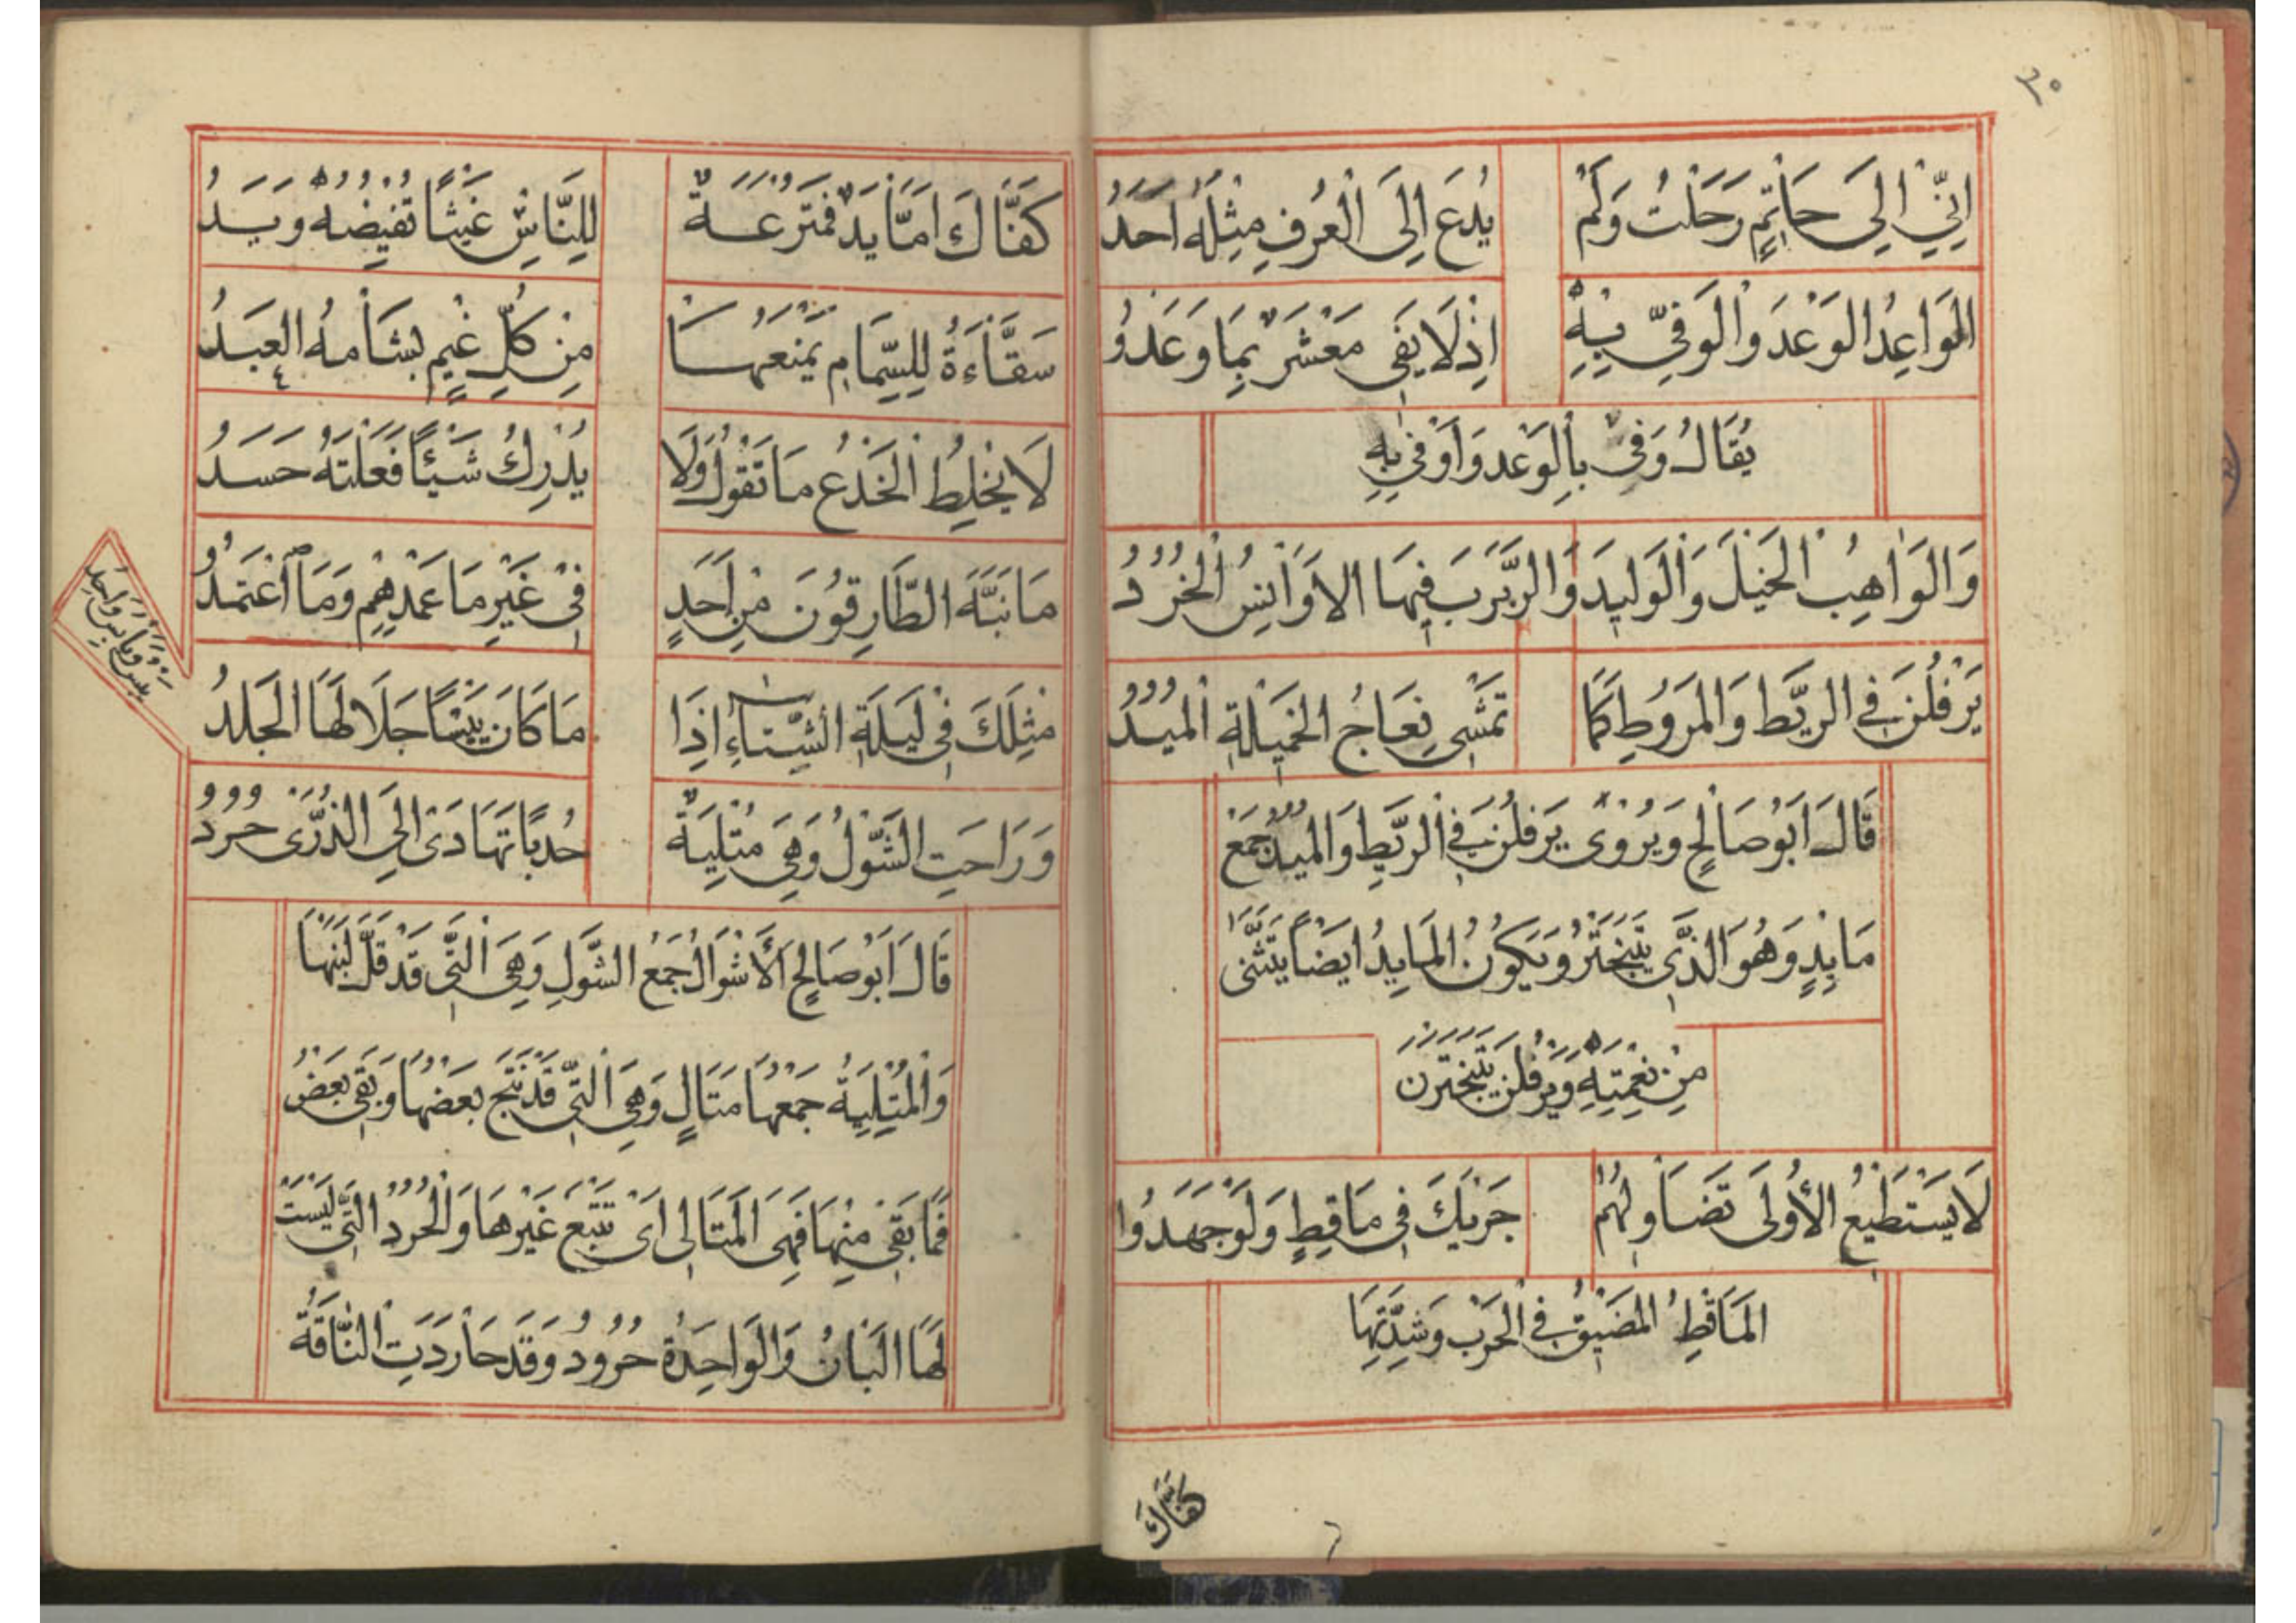 ٣٥
اِنِّي اِلَى حَاتِمٍ رَحَلْتُ وَلَمْ يُدْعَ اِلَى الْعُرْفِ مِثْلَهُ اَحَدُ
الْمَوَاعِدُ الْوَعْدَ وَالْوَفِيّ بِهِ اِذْ لَا يَفِي مَعْشَرٌ بِمَا وَعَدُو
يُقَالُ وَفِيَ بِالْوَعْدِ وَاَوْفَى بِهِ
وَالْوَاهِبُ الْخَيْلَ وَالْوَلِيدَ وَالرَّبْرَبَ فِيهَا الْاَوَانِسُ الْخُرُدُ
يَرْفُلْنَ فِي الرَّيْطِ وَالْمُرُوطِ كَمَا تَمْشِي نِعَاجُ الْخَمِيلَةِ الْمُيُدُ
قَالَ اَبُو صَالِحٍ وَيُرْوَى يَرْفُلْنَ فِي الرَّيْطِ وَالْمُيُدُ جَمْعُ
مَايِدٍ وَهُوَ الَّذِي يَتَبَخْتَرُ وَيَكُونُ الْمَايِدُ اَيْضًا يَتَثَنَّى
مِنْ نِعْمَتِهِ وَيَرْفُلْنَ يَتَبَخْتَرْنَ
لَا يَسْتَطِيعُ الْأُولَى تَضَاوُلَهُمْ جَرْيَكَ فِي مَاقِطٍ وَلَوْ جَهَدُوا
الْمَاقِطُ الْمَضِيقُ فِي الْحَرْبِ وَشِدَّتِهَا
كَفَّاكَ
كَفَّاكَ اَمَّا يَدٌ فَمُتْرَعَةٌ لِلنَّاسِ غَيْثًا تُفِيضُهُ وَيَدُ
سَقَّاءَةٌ لِلسِّمَامِ يَمْنَعُهَا مِنْ كُلِّ غَيْمٍ بِشَامِهُ الْعبَدُ
لَا يَخْلِطُ الْخَدْعُ مَا تَقُولُ وَلَا يُدْرِكُ شَيْئًا فَعَلْتَهُ حَسَدُ
مَا نَبَّهَ الطَّارِقُونَ مِنْ اَحَدٍ فِي غَيْرِ مَا عَمْدِهِمْ وَمَا اعْتَمَدُو
مِثْلَكَ فِي لَيْلَةِ الشِّتَاءِ اِذَا مَا كَانَ يَبْسًا جَلَالَهَا الْجَلَدُ
يبس ويابس واحد
وَرَاحَتِ الشَّوْلُ وَهِيَ مُتْلِيَةٌ حُدْبًا تَهَادَى اِلَى الذُّرَى حُرُدُ
قَالَ اَبُو صَالِحٍ اَلْاَشْوَالُ جَمْعُ الشَّوْلِ وَهِيَ الَّتِي قَدْ قَلَّ لَبَنُهَا
وَالْمُتْلِيَةُ جَمْعُهَا مَتَالٍ وَهِيَ الَّتِي قَدْ نُتِجَ بَعْضُهَا وَبَقِيَ بَعْضٌ
فَمَا بَقِيَ مِنْهَا فَهِيَ الْمَتَالِي اَيْ تَتْبَعُ غَيْرَهَا وَالْحُرُدُ الَّتِي لَيْسَتْ
لَهَا اَلْبَانٌ وَالْوَاحِدَةُ حَرُودٌ وَقَدْ حَارَدَتِ النَّاقَةُ